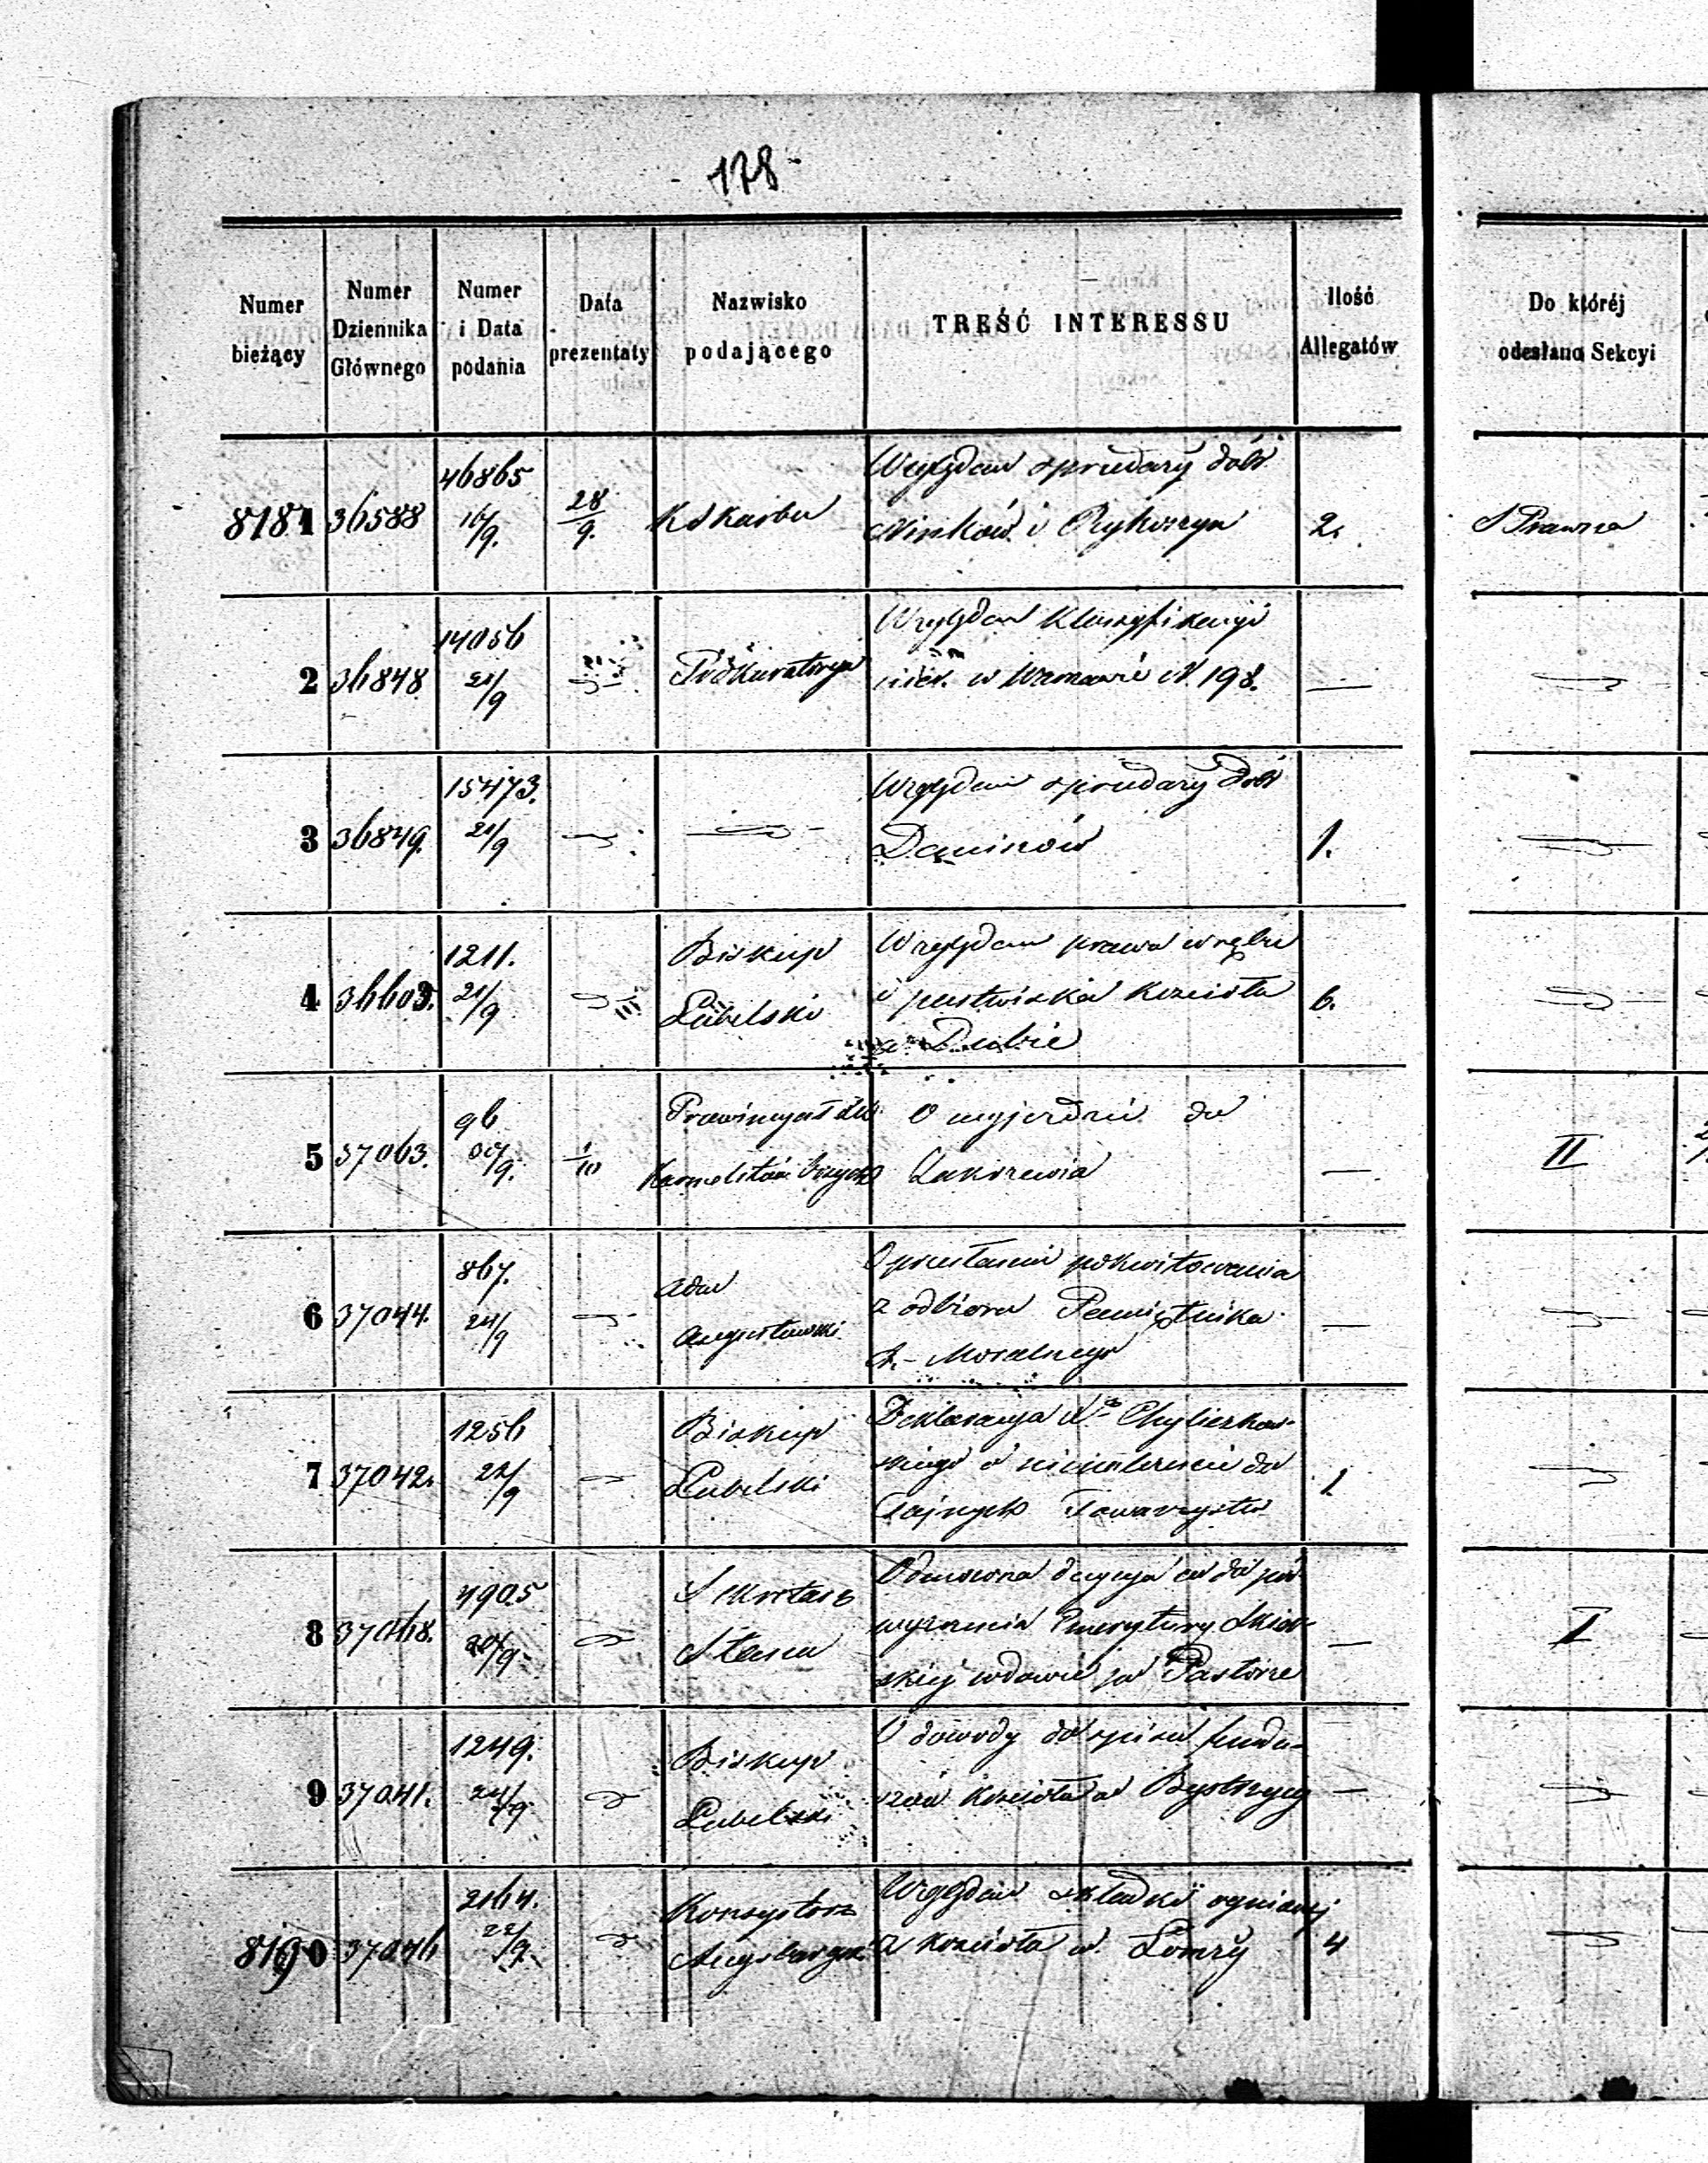 - 178 -
Numer bieżący
Numer Dziennika Głównego
Numer i Data podania
Data prezentaty
Nazwisko podającego
TREŚĆ INTERESSU
Ilość Allegatów
Do któréj odesłano Sekcyi
8181 36588 46865 16/9. 28/9. K S Karbu
Względem sprzedaży dóbr
i 2. S Prawna
2 36848 14056 21/9 Prokuratorya
Względem Klassyfikacyi
w Warszawie N 198. —
3 36849. 15473. 21/9
Względem sprzedaży dóbr
Daminów 1.
4 36603. 1211. 21/9 Biskup Lubelski
Względem prawa wrębu
i pastwiska kościoła 6.
w Dubie
5 37063. 96 /9. 1/10 Prowincyał
Karmelitów
O wyjezdzie do
Zakrzewia — II
6 37044. 867. 24/9 Adm Augustowski
O przesłaniu pokwitowania
z odbioru Pamiętnika —
R. - Moralnego
7 37042. 1256 22/9 Biskup Lubelski
Deklaracya Chyliczkow-
skiego o nienależeniu do 1
Tajnych Towarzystw
8 37068. 4905 20/9. Sekretarz Stanu
Odmowna decyzya co do
Emerytury —
skiej wdowie po Pastorze I
9 37041. 1249. 24/9 Biskup Lubelski
O dowody do spisu fundu-
szów kościoła w Bystrzycy —
8190 37046 2164. 22/9. Konsystorz Augsburgski
Względem składki ogniowej
z kościoła w Łomży 4